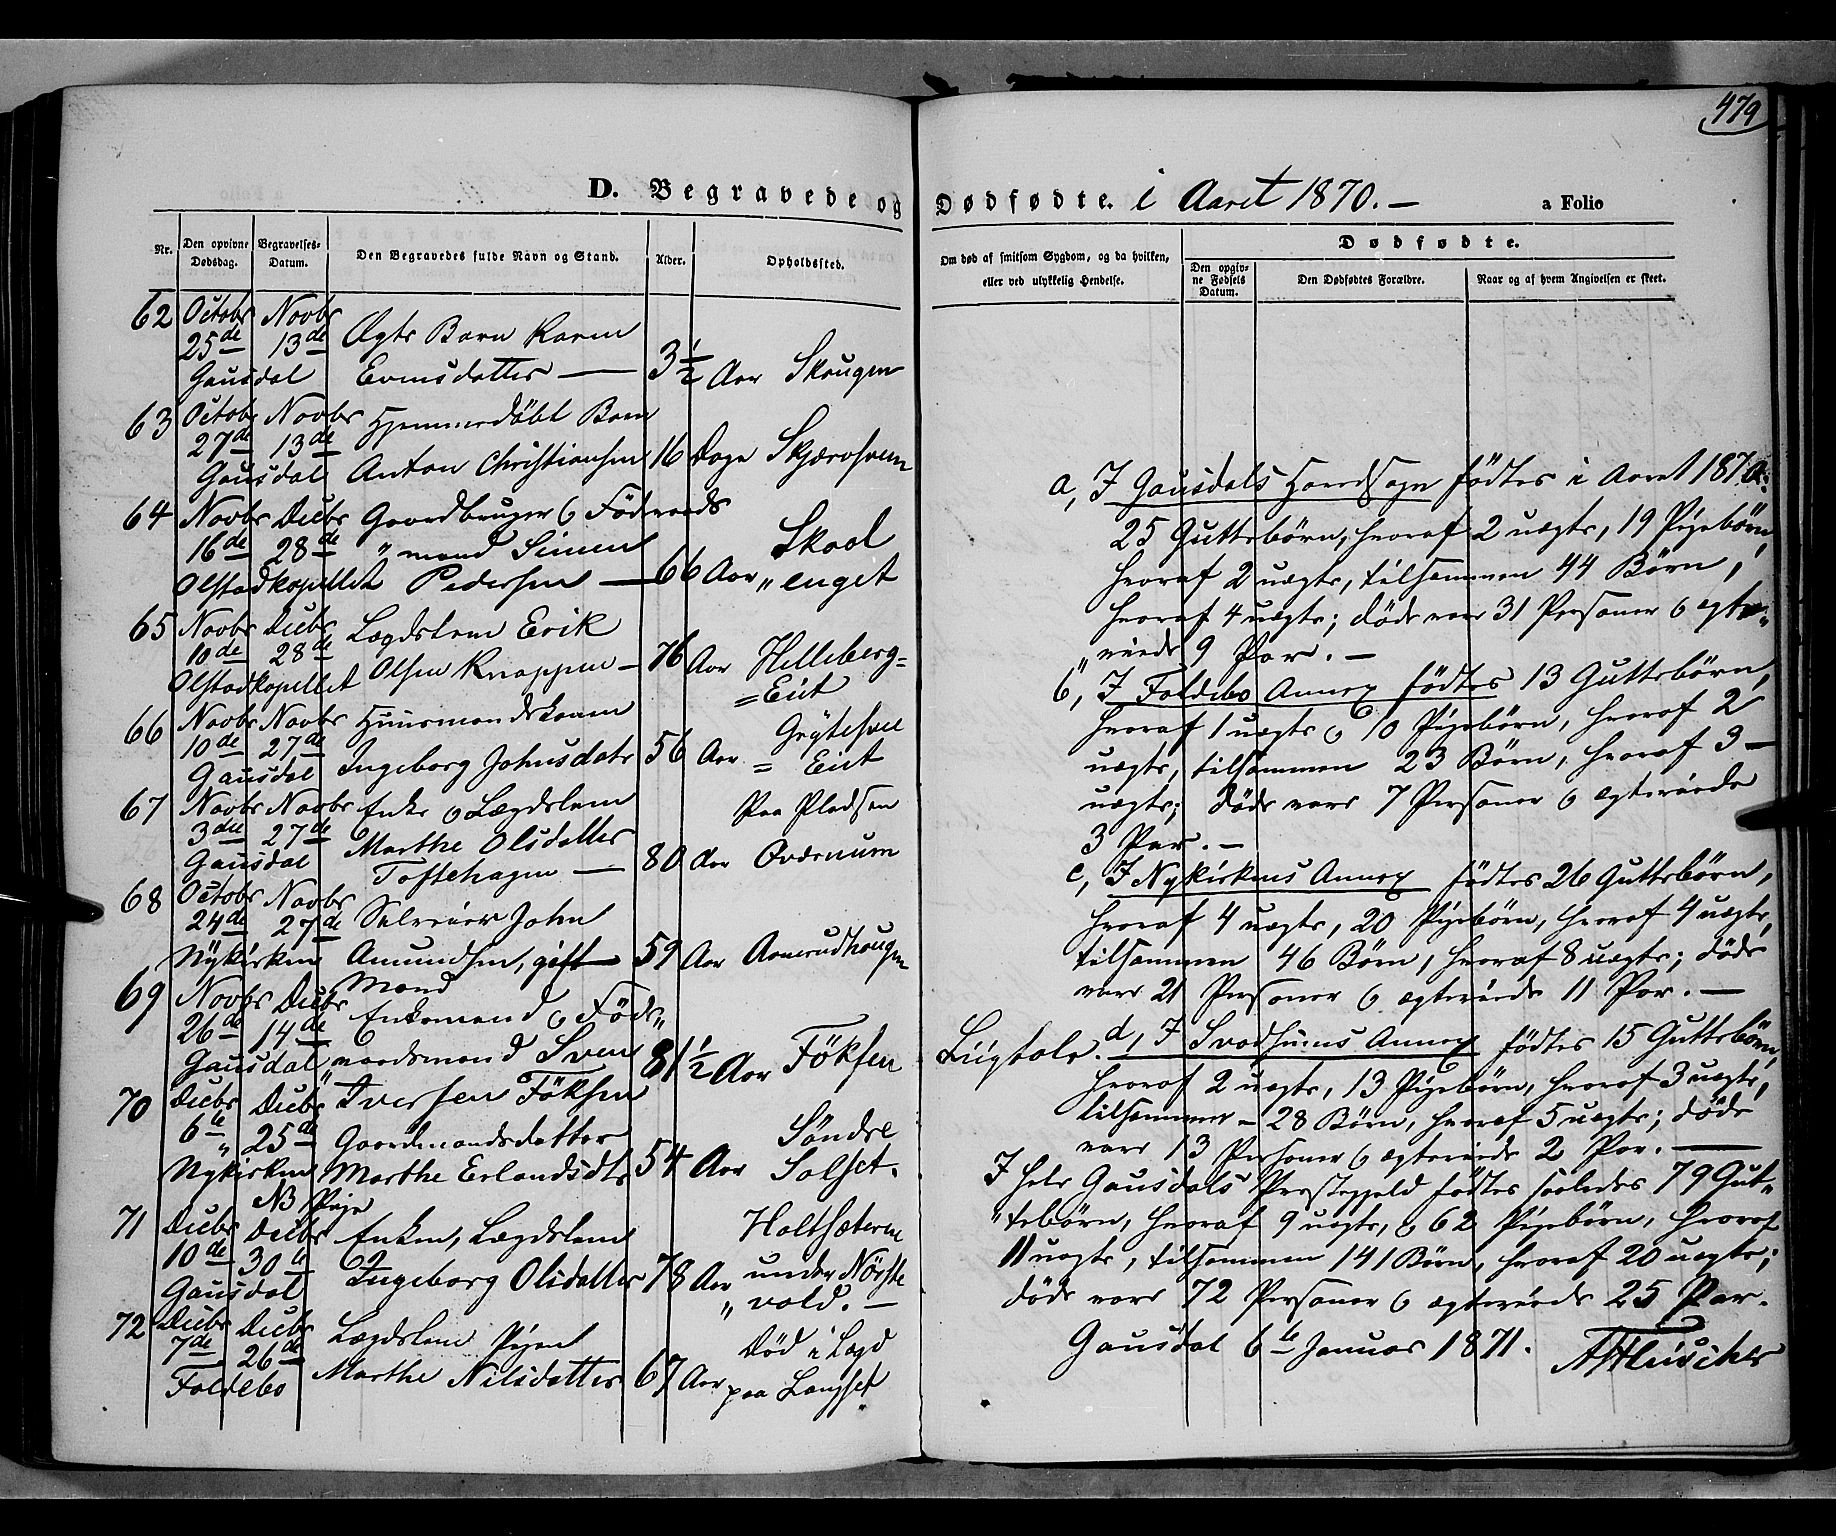 479
D. Begravede og Dødfødte. i Aaret 1870. — a Folio
Nr.
Den opgivne Dødsdag.
Begravelses-Datum.
Den Begravedes fulde Navn og Stand.
Alder.
Opholdssted.
Om død af smitsom Sygdom, og da hvilken,
eller ved ulykkelig Hendelse.
Dødfødte.
Den opgiv-
ne Fødsels
Datum.
Den Dødfødtes Forældre.
Naar og af hvem Angivelsen er skeet.
62 Octobr Novbr
25de 13de Ægte Barn Karen
Gausdal Evensdatter — 3½ Aar Skougen
63 Octobr Novbr Hjemmedøbt Barn
27de 13de
Gausdal Anton Christiansen 16 Dage
64 Novbr Decbr Gaardbruger o Föderaads
16de 28de „mand Simen Skaal
Olstadkapellet Pedersen — 66 Aar „enget
65 Novbr Decbr Lægdslem Erik
10de 28de
Olstadkapellet Olsen Knappen — 76 Aar Helleberg=
=Eiet
66 Novbr Novbr Huusmandskone
10de 27de
Gausdal Ingeborg Johnsdatr 56 Aar = Eiet
67 Novbr Novbr Enke o Lægdslem Paa Pladsen
3die 27de Marthe Olsdatter
Gausdal Toftehagen — 80 Aar
68 Octobr Novbr
24de 27de Selveier John
Nykirken Amundsen, gift 59 Aar
Mand
69 Novbr Decbr Enkemand o Föde„
26de 14de
Gausdal „raadsmand Sven 81½ Aar Föksen
Iversen Föksen
Liigtale.
70 Decbr Decbr
6te „ 25de Gaardmandsdatter Söndre
Nykirken Marthe Erlandsdtr 54 Aar Solset.
NB Pige
71 Decbr Decbr Enken, Lægdslem Holtsæteren
10de 30te
Gausdal Ingeborg Olsdatter 78 Aar under Nörste
„vold. —
72 Decbr Decbr Lægdslem Pigen Död i Lægd
7de 26de
Foldebo Marthe Nilsdatter 67 Aar paa Langset
a, I Gausdals Hovedsogn fødtes i Aaret 1870:
25 Guttebörn, hvoraf 2 uægte, 19 Pigebörn,
hvoraf 2 uægte, tilsammen 44 Börn,
hvoraf 4 uægte; døde vare 31 Personer o ægte„
„viede 9 Par. —
b, I Foldebo Annex fødtes 13 Guttebörn,
hvoraf 1 uægte o 10 Pigebörn, hvoraf 2
uægte, tilsammen 23 Börn, hvoraf 3 —
uægte; døde vare 7 Personer o ægteviede
3 Par. —
c, I Nykirkens Annex fødtes 26 Guttebörn,
hvoraf 4 uægte, 20 Pigebörn, hvoraf 4 uægte,
tilsammen 46 Börn, hvoraf 8 uægte; døde
vare 21 Personer o ægteviede 11 Par. —
d, I Svadsums Annex fødtes 15 Guttebörn,
hvoraf 2 uægte, 13 Pigebörn, hvoraf 3 uægte,
tilsammen — 28 Börn, hvoraf 5 uægte; døde
vare 13 Personer o ægteviede 2 Par. —
I hele Gausdals Præstegjeld fødtes saaledes 79 Gut„
„tebörn, hvoraf 9 uægte, o 62 Pigebörn, hvoraf
11 uægte, tilsammen 141 Börn, hvoraf 20 uægte;
døde vare 72 Personer o ægteviede 25 Par.
Gausdal 6te Januar 1871.